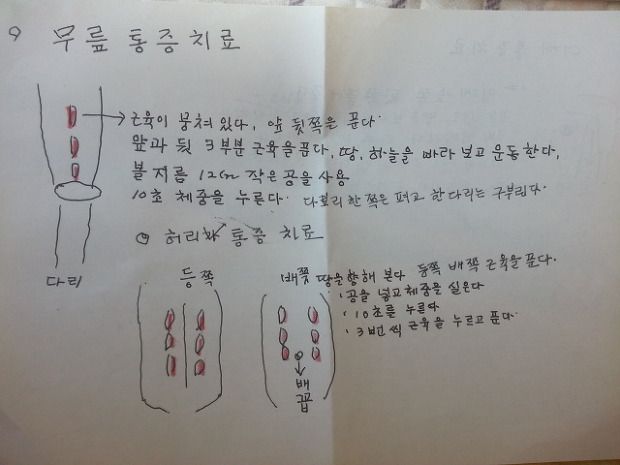 9 무릎 통증 치료
근육이 뭉쳐있다, 앞 뒷쪽을 푼다.
앞과 뒷 3부분 근육을 품다, 땅, 하늘을 바라 보고 운동한다,
볼 지름 12cm 작은 공을 사용
10초 체중을 누른다. 다리 한 쪽은 펴고 한 다리는 구부린다.
◎ 허리와 통증 치료
다리
등쪽
배쪽 땅을 향해 본다 등쪽 배쪽 근육을 푼다.
· 공을 넣고 체중을 실은다
· 10초를 누른다
· 3번씩 근육을 누르고 푼다.
배
꼽